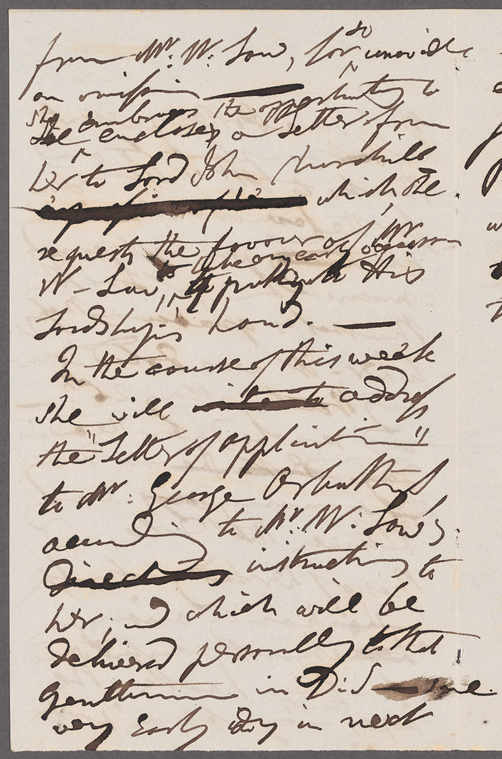 from Mr. W. Law, for so
an omission
she embraces the opportunity to
enclose, a Letter from
her to Lord John Churchill
which she
requests the favour of Mr.
W. Law, to take an early occasion
to put into His
Lordship's hand. —
In the course of this week
she will address
the "Letter of application"
to Mr. George Arbuthnot
according to Mr. W. Law's
instructions to
her; and which will be
delivered personally to that
Gentleman in
very early day in next